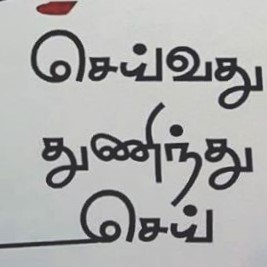 செய்வது
துணிந்து
செய்